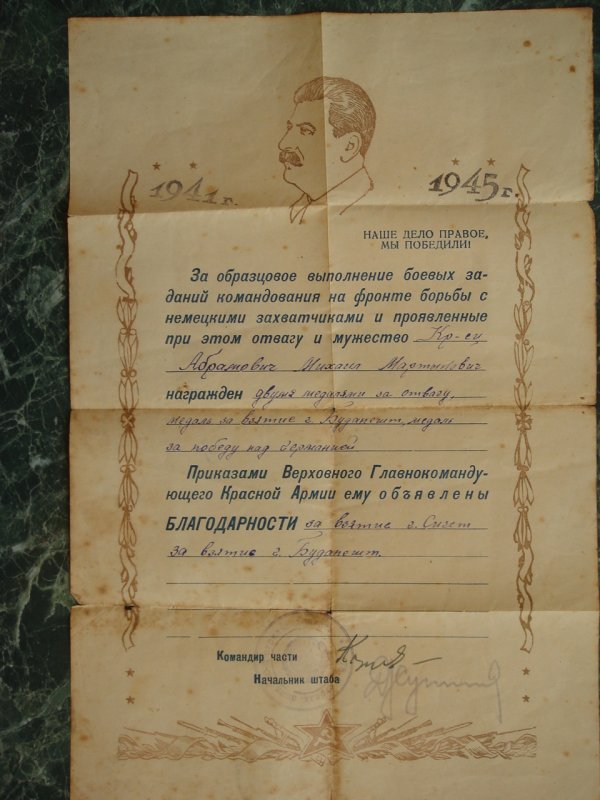 1941г.
1945г.
НАШЕ ДЕЛО ПРАВОЕ,
МЫ ПОБЕДИЛИ!
За образцовое выполнение боевых за-
даний командования на фронте борьбы с
немецкими захватчиками и проявленные
при этом отвагу и мужество Кр-ец
Абрамович Михаил Мартынович
награжден двумя медалями за отвагу,
медаль за взятие г. Будапешт, медаль
за победу над Германией
Приказами Верховного Главнокоманду-
ющего Красной Армии ему объявлены
БЛАГОДАРНОСТИ за взятие г. Сигет
за взятие г. Будапешт.
Командир части
Начальник штаба